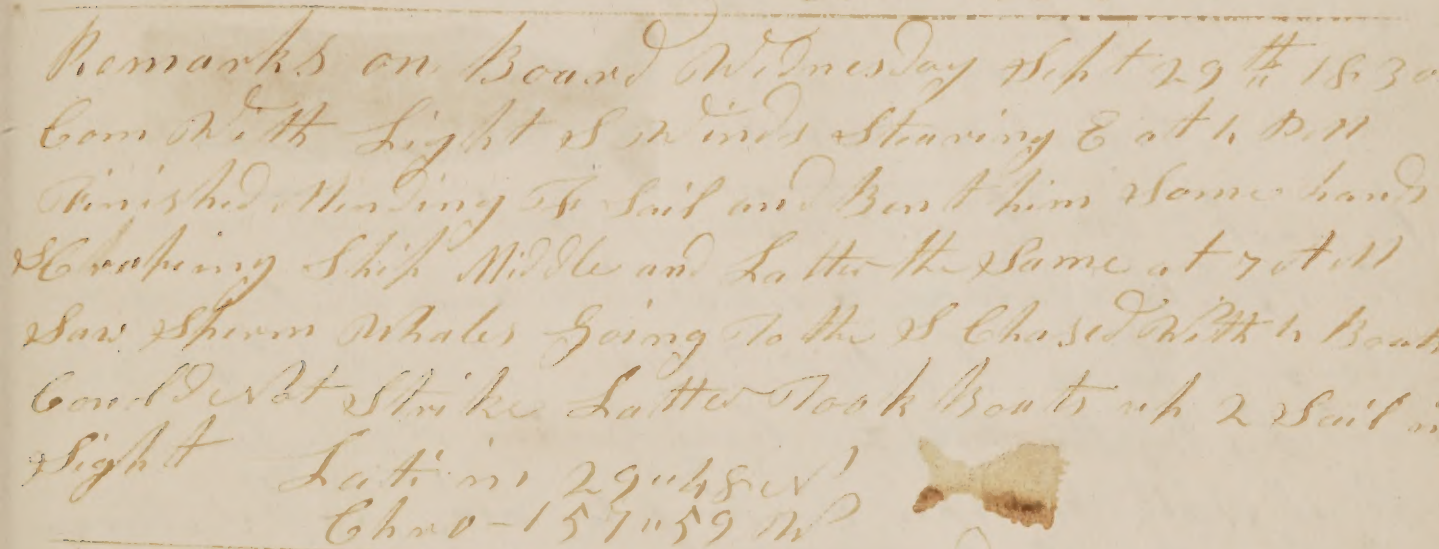 Remarks on Board Wednesday Sept 29th 1830
Com With Light S Winds Stearing E at 4 P M
Finished Mending F Sail and Bent him Some hands
SCraping Ship Middle and Latter the Same at 7 A M
Saw Sperm Whales Going To the S Chased With 4 Boats
Could Not Strike Latter Took Boats up 2 Sail in
Sight Lat in 29"48 N
Chro - 157"59 W